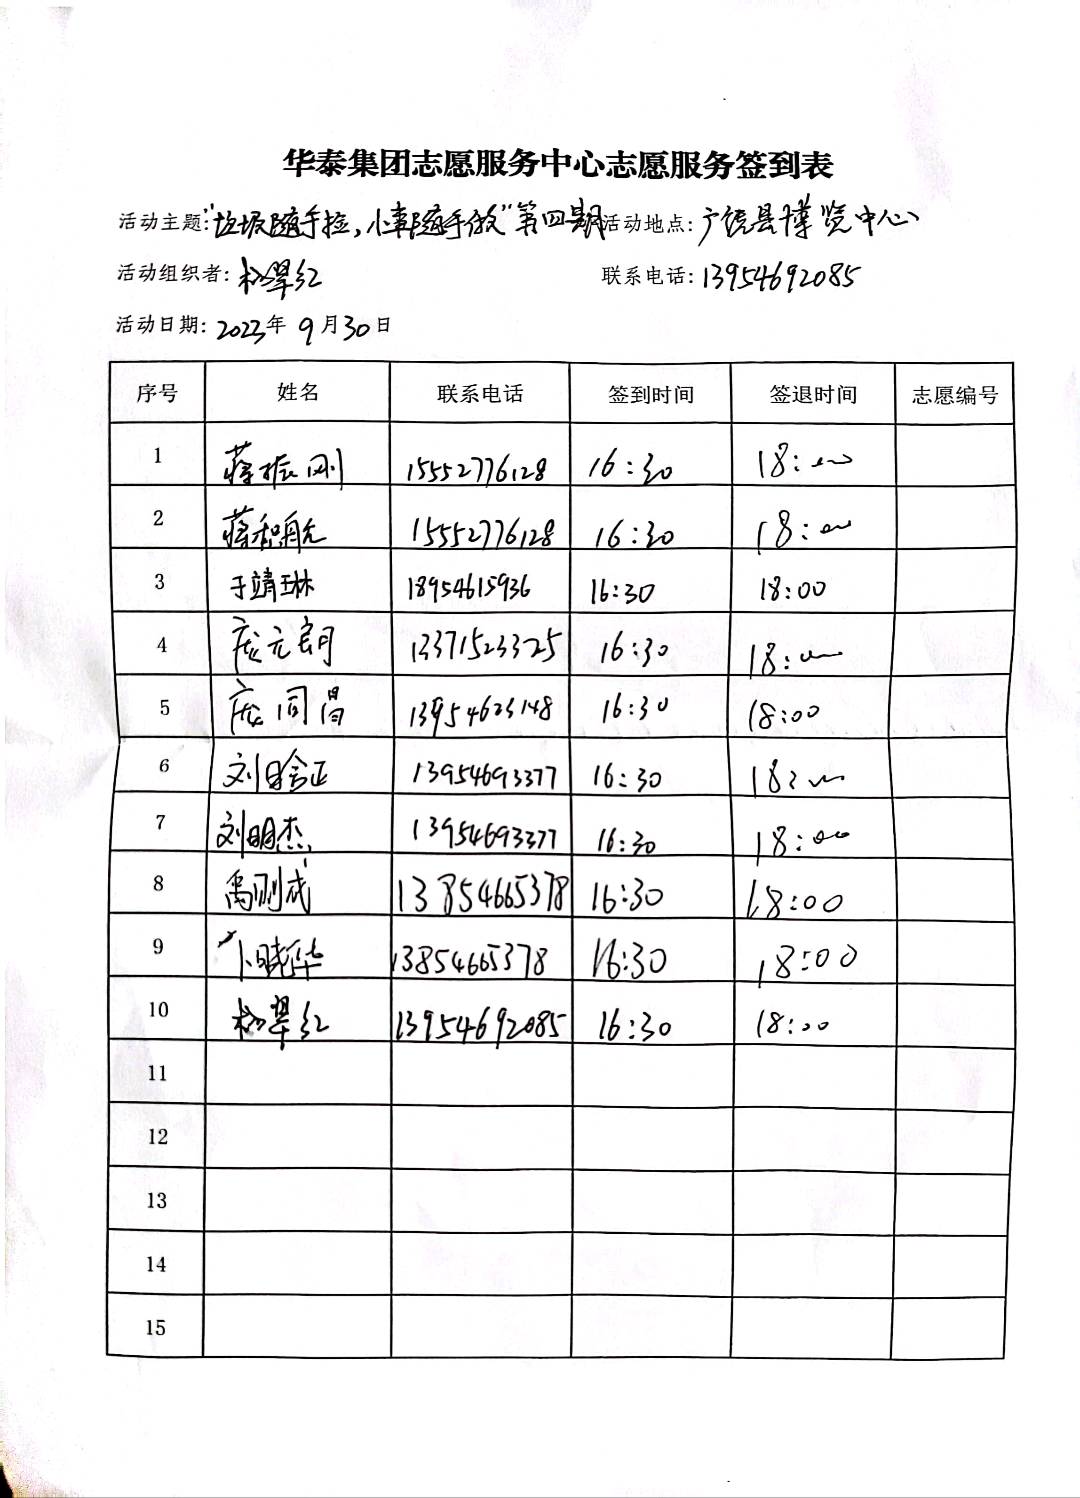 华泰集团志愿服务中心志愿服务签到表
活动主题:“垃圾随手捡,小事随手做”第四期 活动地点:广饶县博览中心
活动组织者:杨翠红 联系电话:13954692085
活动日期:2023年9月30日
序号 姓名 联系电话 签到时间 签退时间 志愿编号
1 蒋振刚 15552776128 16:30 18:00
2 蒋和航 15552776128 16:30 18:00
3 于靖琳 18954615936 16:30 18:00
4 庞元朗 13371523325 16:30 18:00
5 庞同昌 13954623148 16:30 18:00
6 刘晗正 13954693377 16:30 18:00
7 刘明杰 13954693377 16:30 18:00
8 禹刚成 13854665378 16:30 18:00
9 卜晓华 13854665378 16:30 18:00
10 杨翠红 13954692085 16:30 18:00
11
12
13
14
15